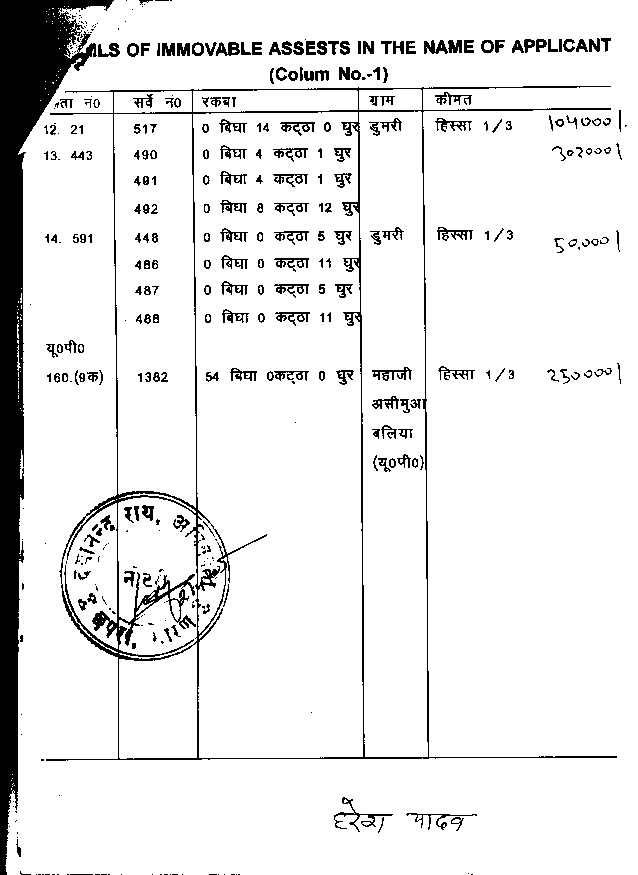 ILS OF IMMOVABLE ASSESTS IN THE NAME OF APPLICANT
(Colum No.-1)
ता नं0 सर्वे नं0 रकबा ग्राम कीमत
12. 21 517 0 बिघा 14 कट्ठा 0 घुर डुमरी हिस्सा 1/3 104000/.
13. 443 490 0 बिघा 4 कट्ठा 1 घुर 302000/
491 0 बिघा 4 कट्ठा 1 घुर
492 0 बिघा 8 कट्ठा 12 घुर
14. 591 448 0 बिघा 0 कट्ठा 5 घुर डुमरी हिस्सा 1/3 50,000/
486 0 बिघा 0 कट्ठा 11 घुर
487 0 बिघा 0 कट्ठा 5 घुर
488 0 बिघा 0 कट्ठा 11 घुर
यू0पी0
160.(9क) 1382 54 बिघा 0कट्ठा 0 घुर महाजी हिस्सा 1/3 250000/
असीमुआ
बलिया
(यू0पी0)
दयानन्द राय,
छपरा,
हरेश यादव